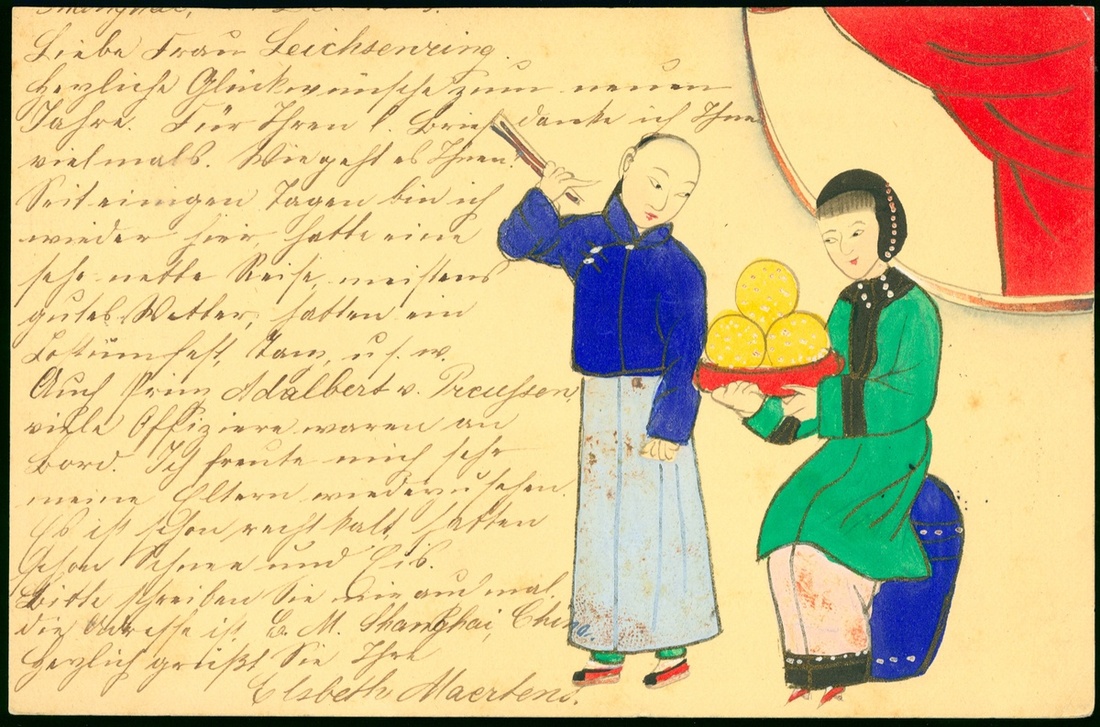 Shanghai,
Liebe Frau Leichsenring.
Herzliche Glückwünsche zum neuen
Jahre. Für Ihren l. Brief danke ich Ihnen
vielmals. Wie geht es Ihnen?
Seit einigen Tagen bin ich
wieder hier, hatte eine
sehr nette Reise, meistens
gutes Wetter, hatten ein
Kostümfest, Tanz, u. s. w.
Auch Prinz Adalbert v. Preussen,
viele Offiziere waren an
Bord. Ich freute mich sehr
meine Eltern wiederzusehen.
Es ist schon recht kalt, hatten
schon Schnee und Eis.
Bitte schreiben Sie mir auch mal.
Die Adresse ist, E. M. Shanghai, China.
Herzlich grüßt Sie Ihre
Elsbeth Maertens.